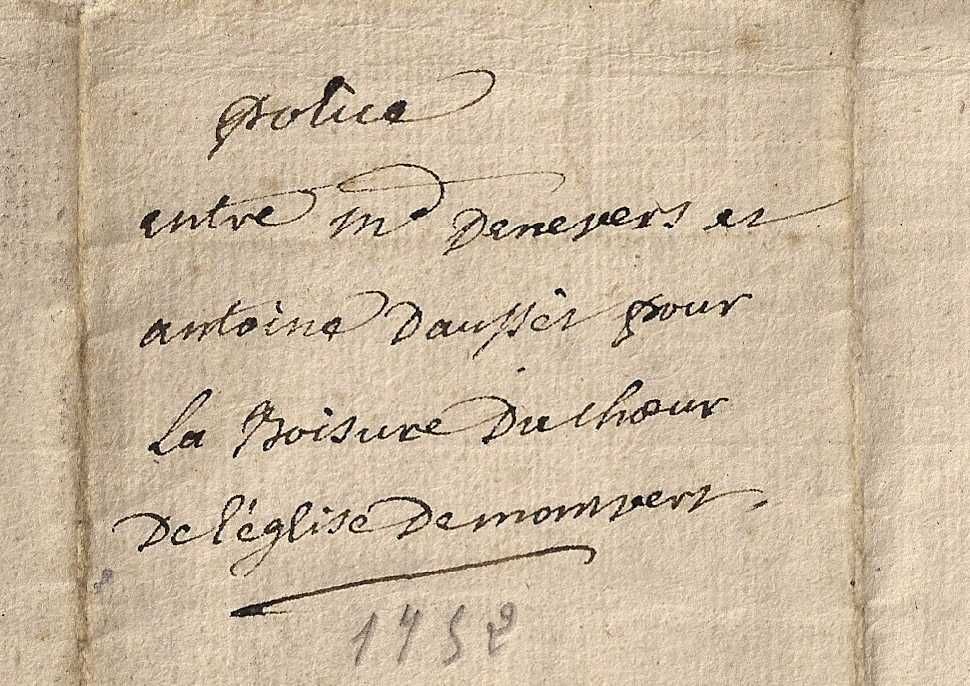 police
entre mr Denevers et
antoine Dausset pour
La Boisure Du Chœur
De l'église De momvert.
1752